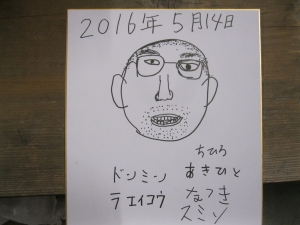 2016年5月14日
ちひろ
ドンミン あきひと
テエイコウ なつき
スミソ